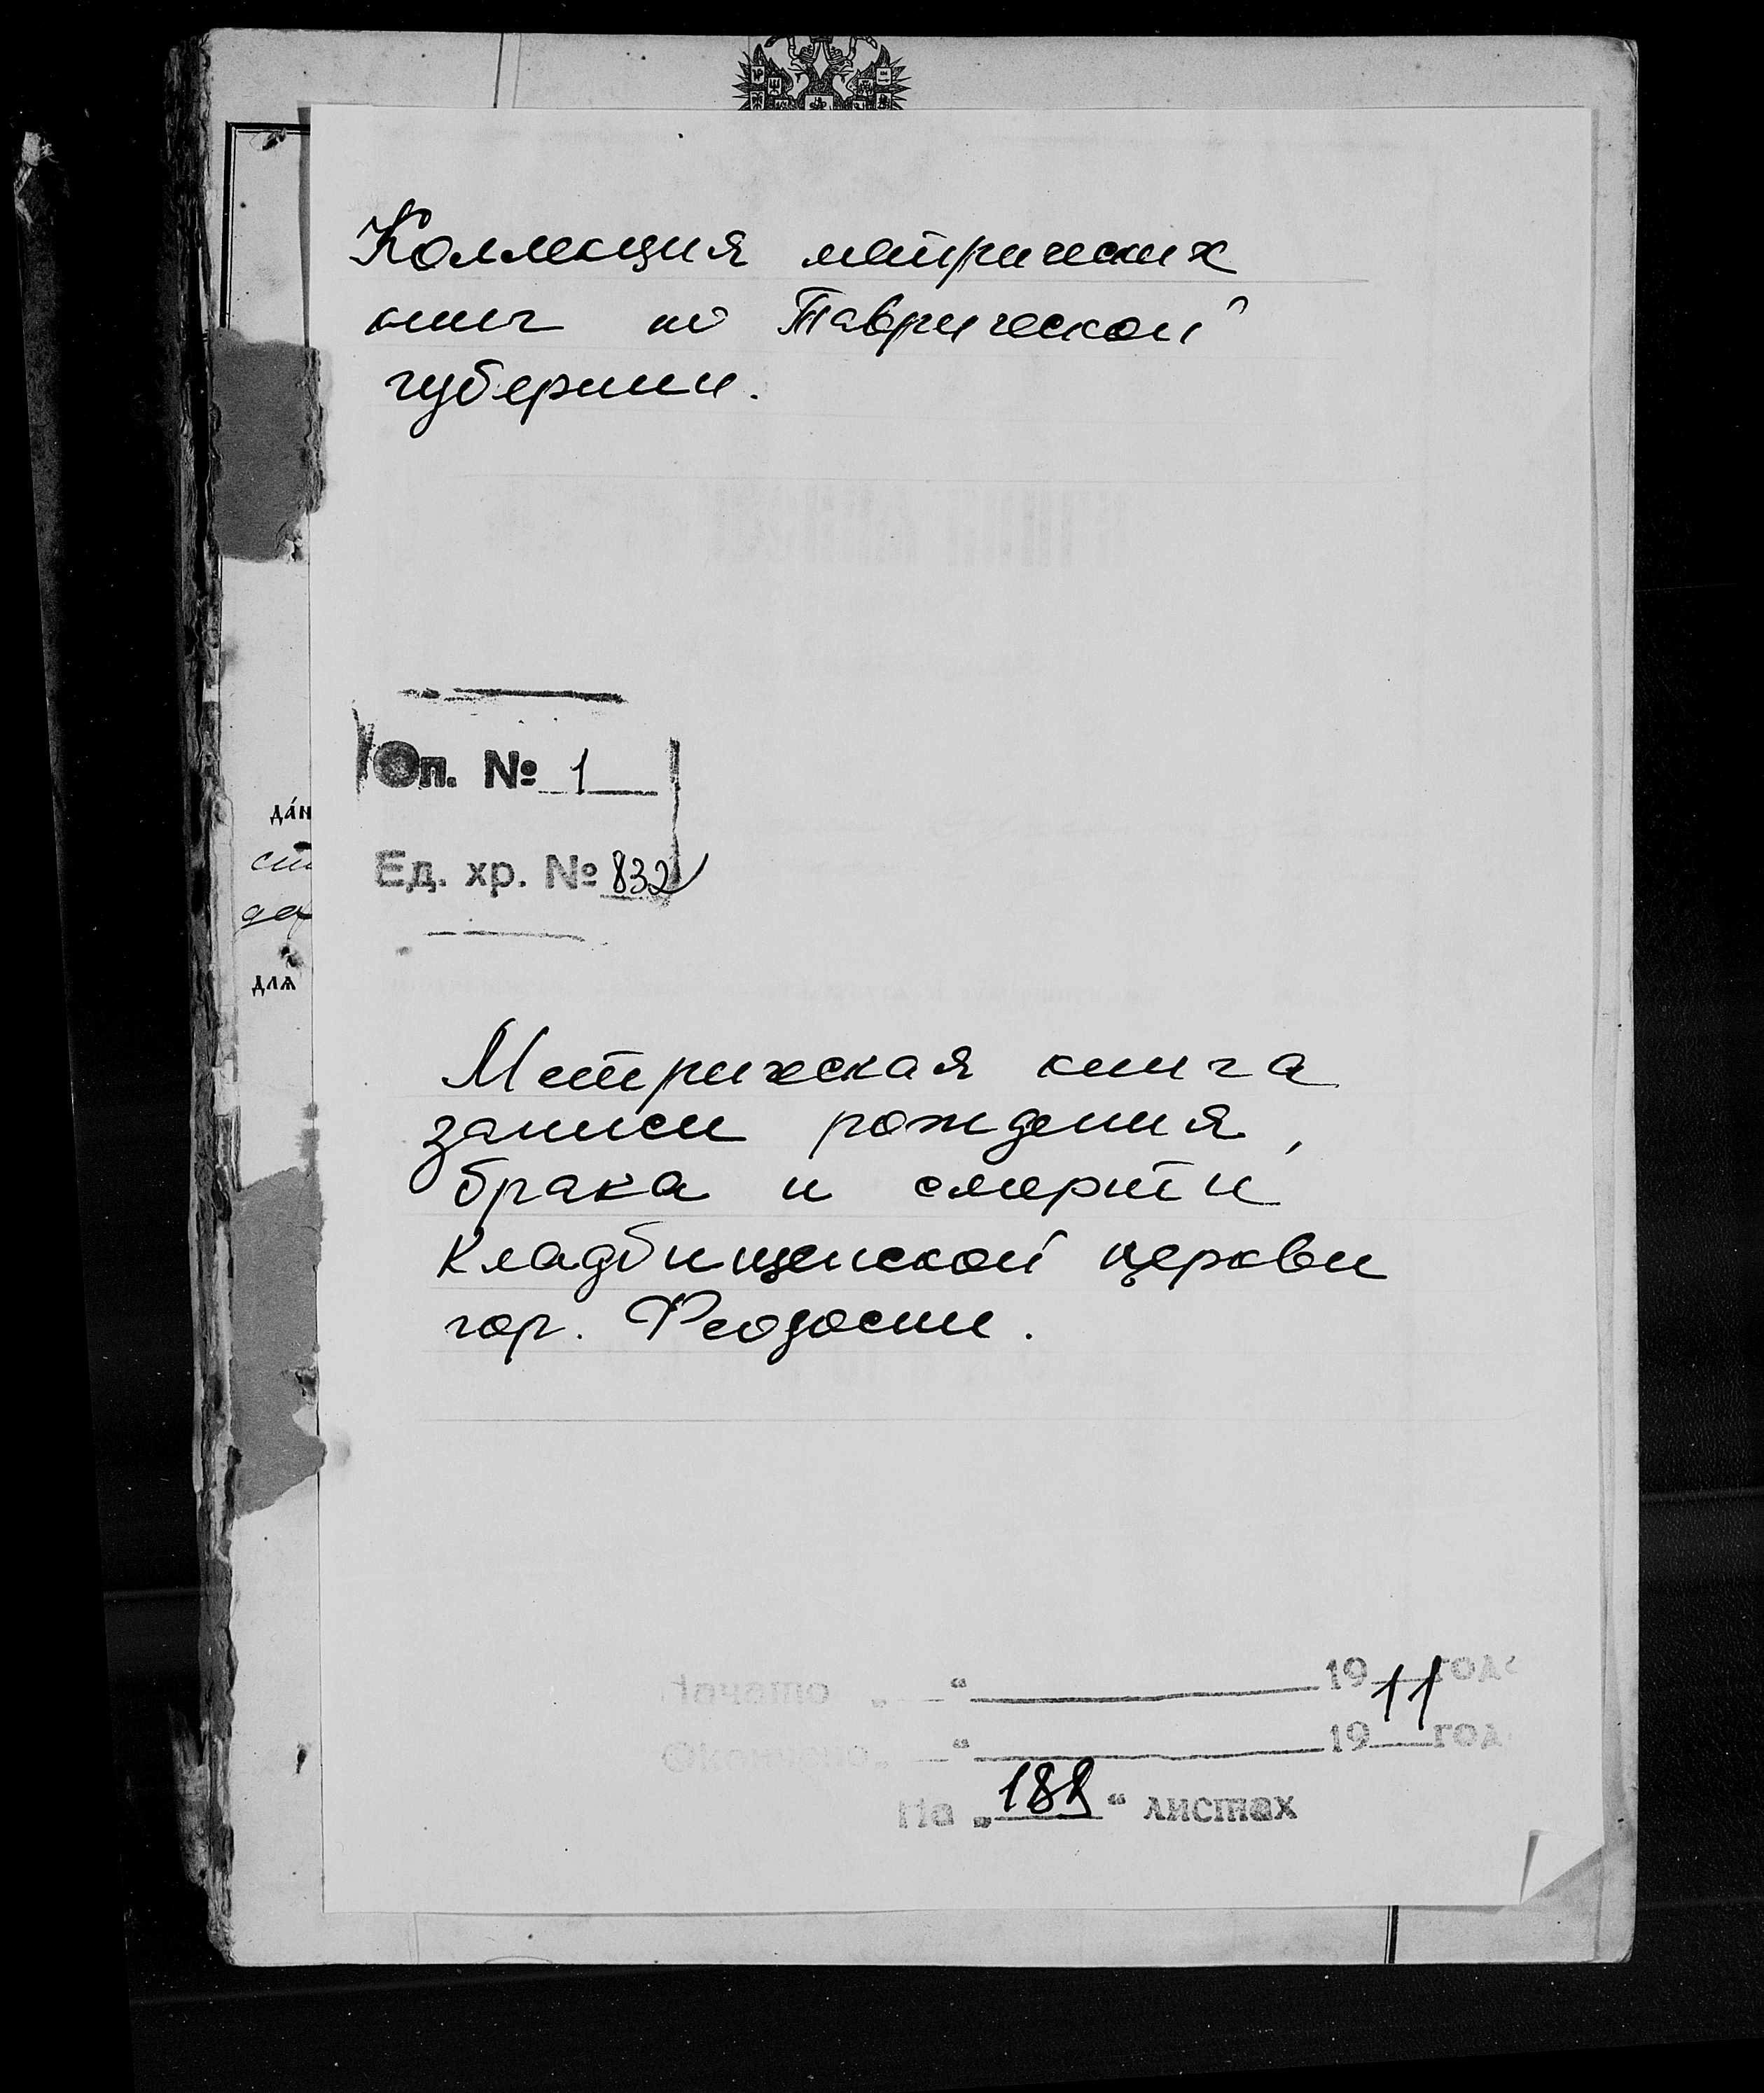 Коллекция метрических
книг по Таврической
губернии.
Оп. № 1
Ед. хр. № 832
да́н
ст
до
для
Метрическая книга
записи рождения,
брака и смерти
Кладбищенской церкви
гор. Феодосии.
Начато „ “ 1911 года
Окончено „ “ 19 год
На „188“ листах